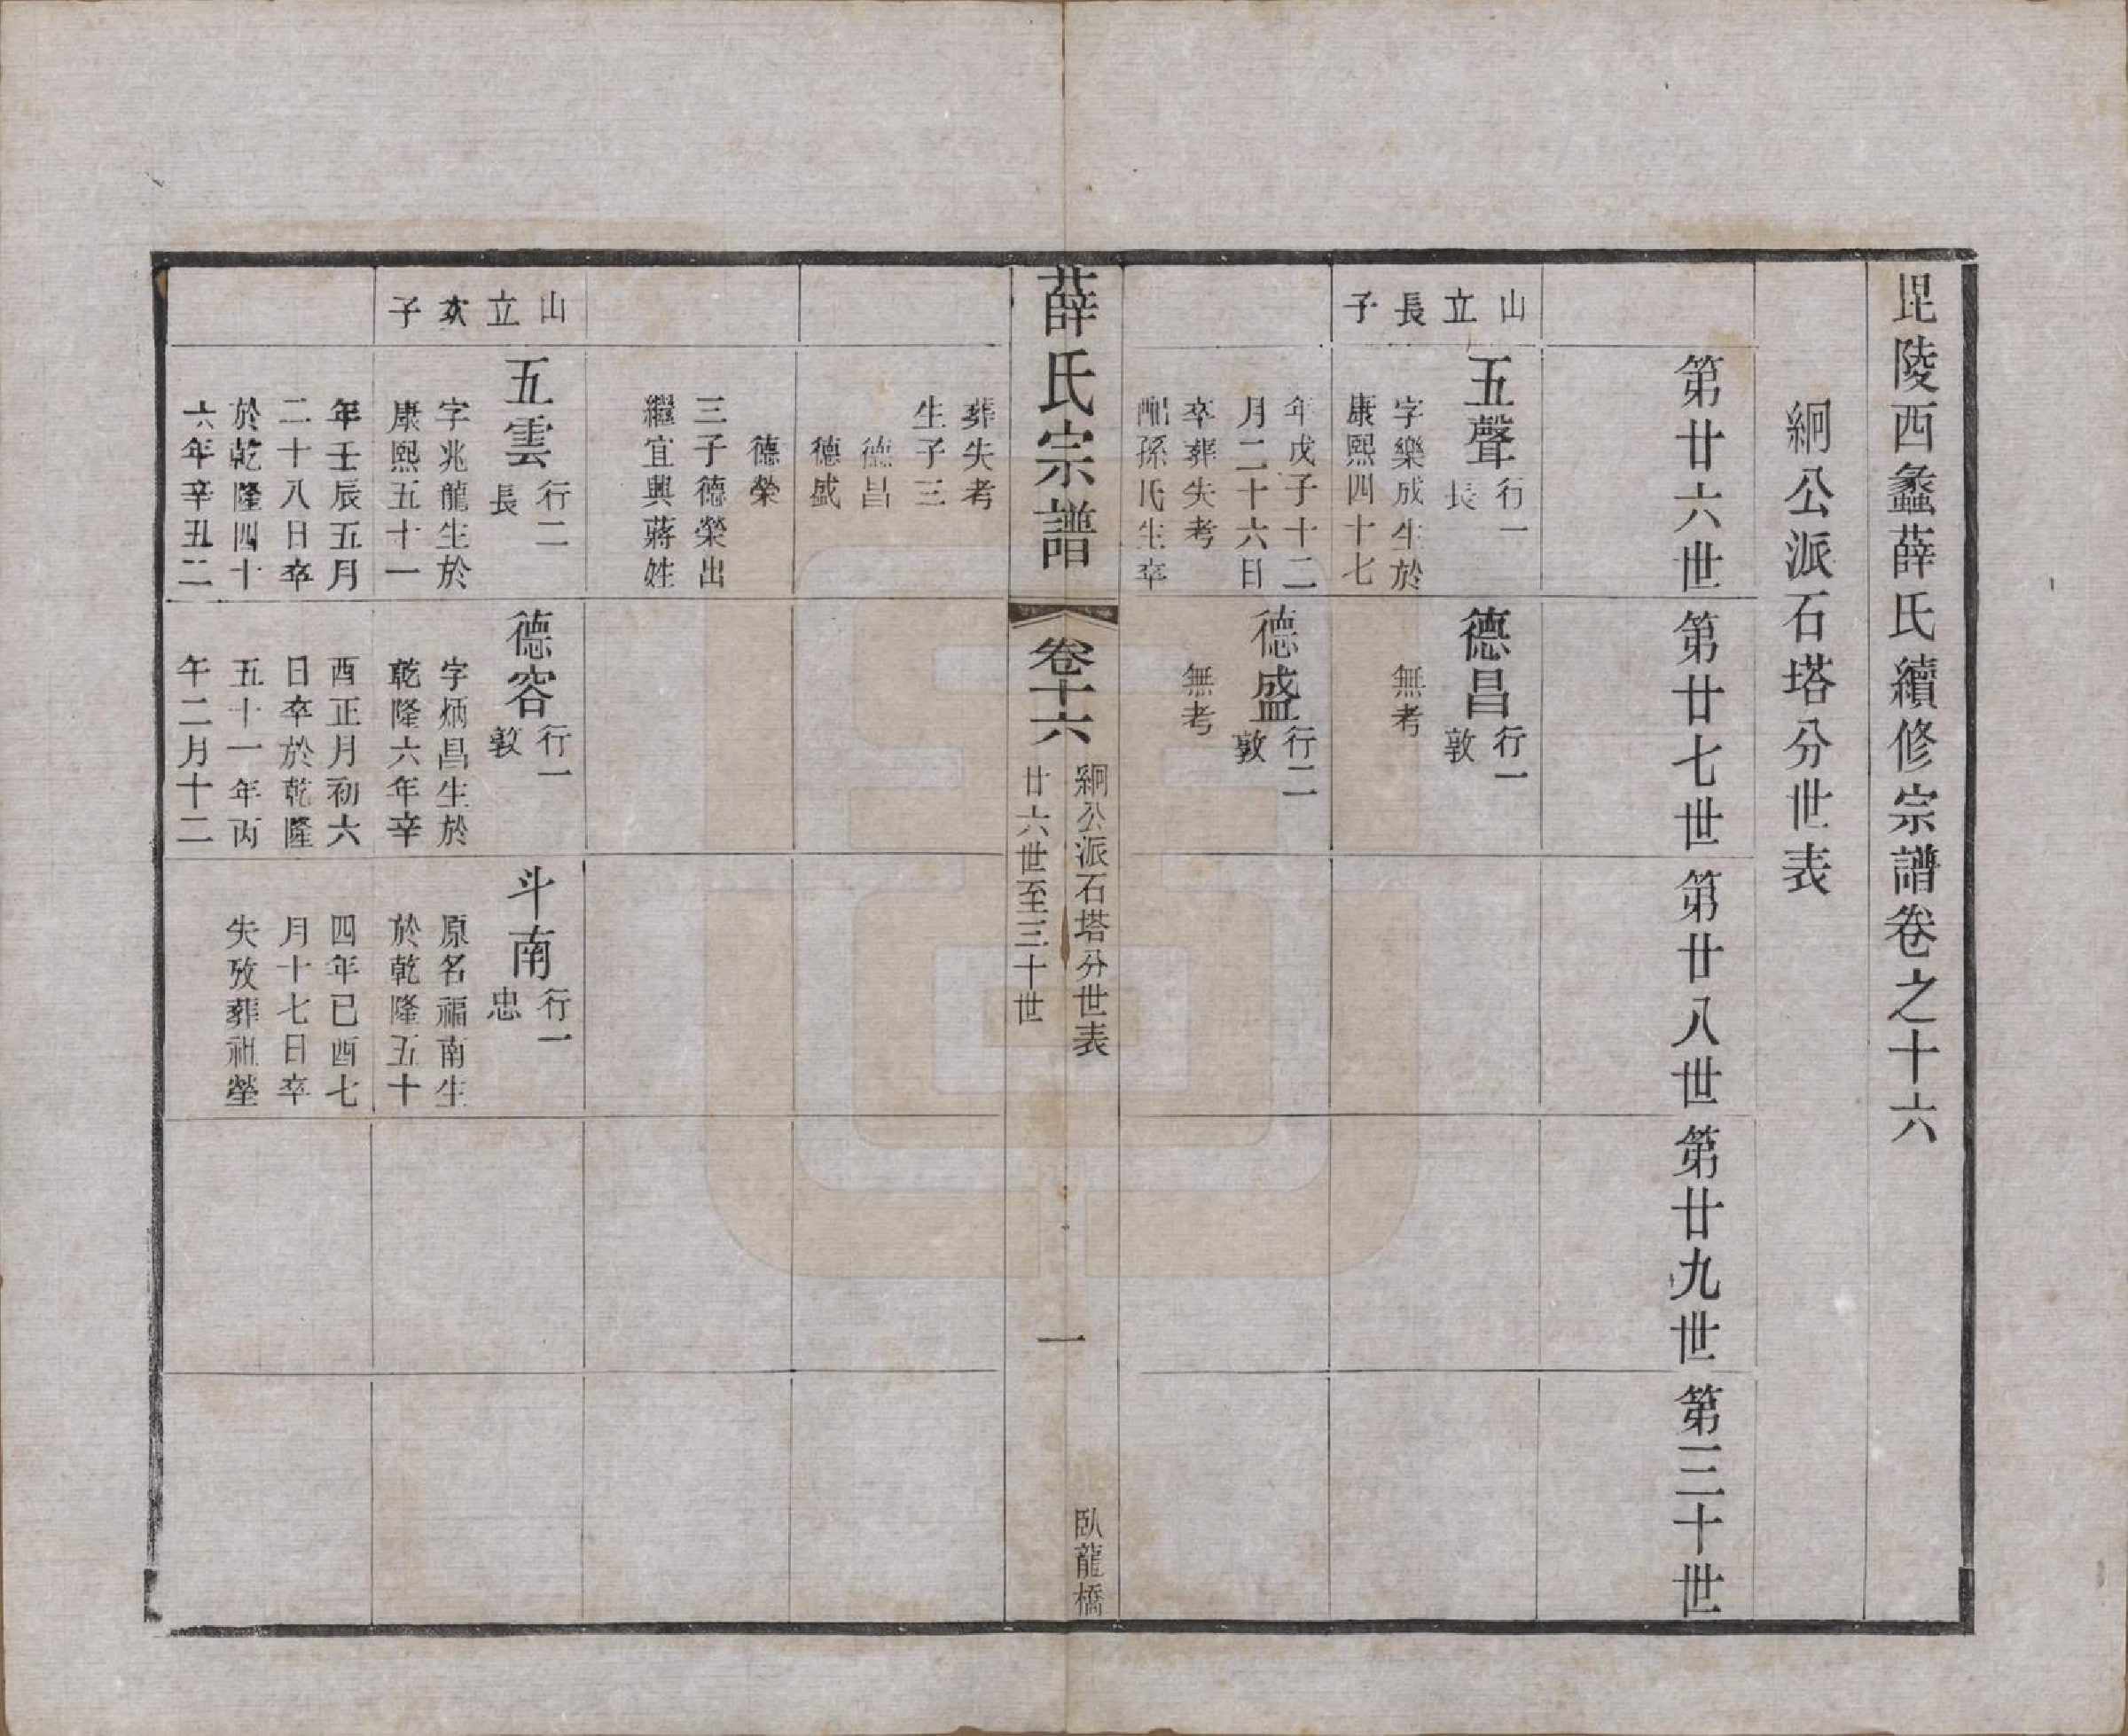 毘陵西蠡薛氏續修宗譜卷之十六
絅公派石塔分世表
第廿六世
第廿七世
第廿八世
第廿九世
第三十世
山立長子
五聲
行一
長
字樂成生於
康熙四十七
年戊子十二
月二十六日
卒葬失考
配孫氏生卒
德昌
行一
敦
無考
德盛
行二
敦
無考
薛氏宗譜
卷十六
絅公派石塔分世表
廿六世至三十世
一
臥龍橋
葬失考
生子三
德昌
德盛
德榮
三子德榮出
繼宜興蔣姓
山立次子
五雲
行二
長
字兆龍生於
康熙五十一
年壬辰五月
二十八日卒
於乾隆四十
六年辛丑二
德容
行一
敦
字炳昌生於
乾隆六年辛
酉正月初六
日卒於乾隆
五十一年丙
午二月十二
斗南
行一
忠
原名福南生
於乾隆五十
四年已酉七
月十七日卒
失攷葬祖塋